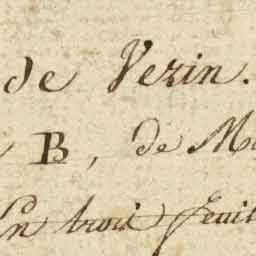 de Verin.
B, de M
En trois feuil